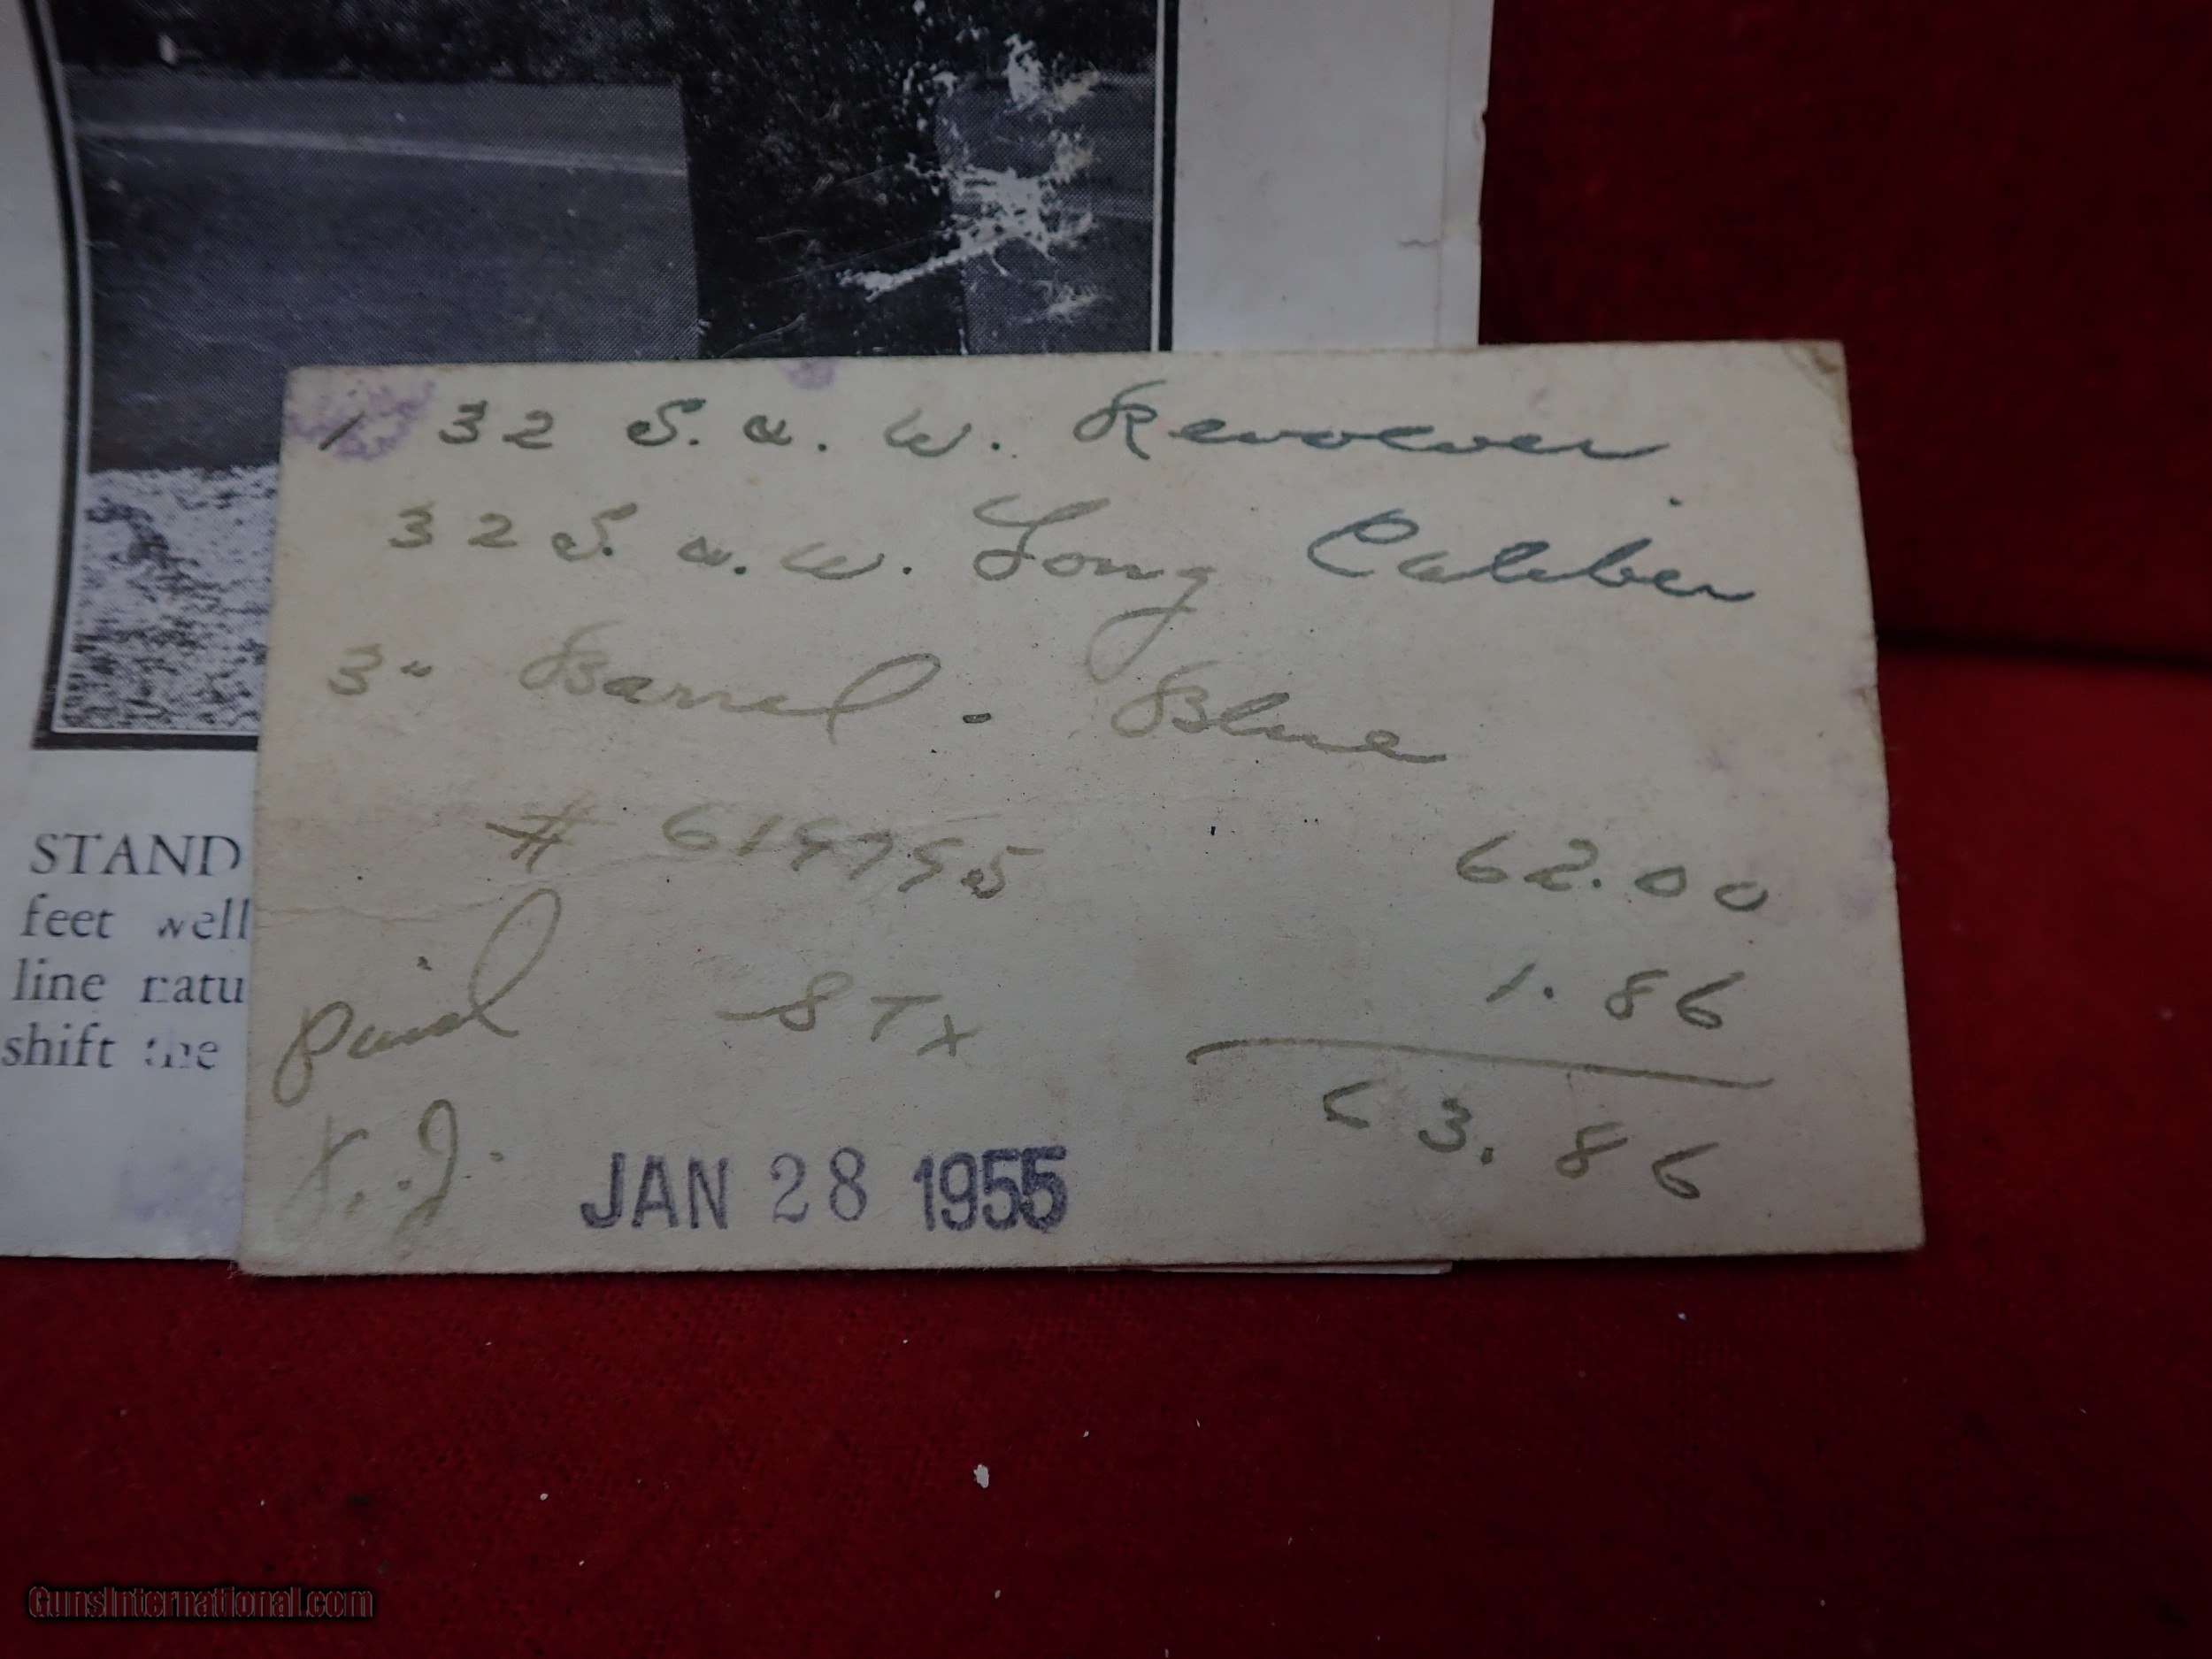 1 32 S. & W. Revolver
32 S. & W. Long Caliber
3" Barrel - Blue
# 619795 62.00
Paid STx 1.86
63.86
JAN 28 1955
STAND
feet well
line natu
shift the
GunsInternational.com